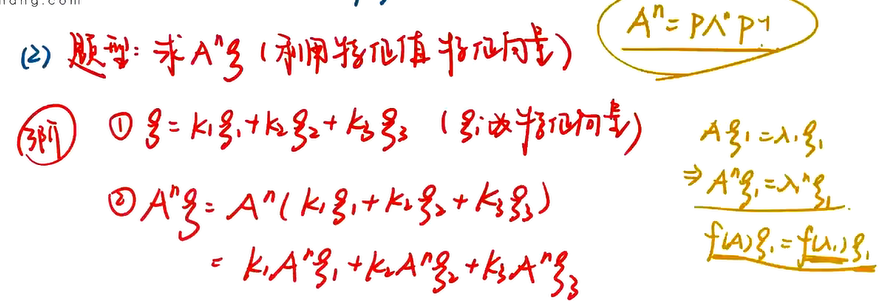 (2) 题型: 求 Aⁿξ (利用特征值 特征向量)
Aⁿ = PΛⁿP⁻¹
3阶
① ξ = k₁ξ₁ + k₂ξ₂ + k₃ξ₃ (ξᵢ 是特征向量)
② Aⁿξ = Aⁿ(k₁ξ₁ + k₂ξ₂ + k₃ξ₃)
= k₁Aⁿξ₁ + k₂Aⁿξ₂ + k₃Aⁿξ₃
Aξ₁ = λ₁ξ₁
⇒ Aⁿξ₁ = λ₁ⁿξ₁
f(A)ξ₁ = f(λ₁)ξ₁